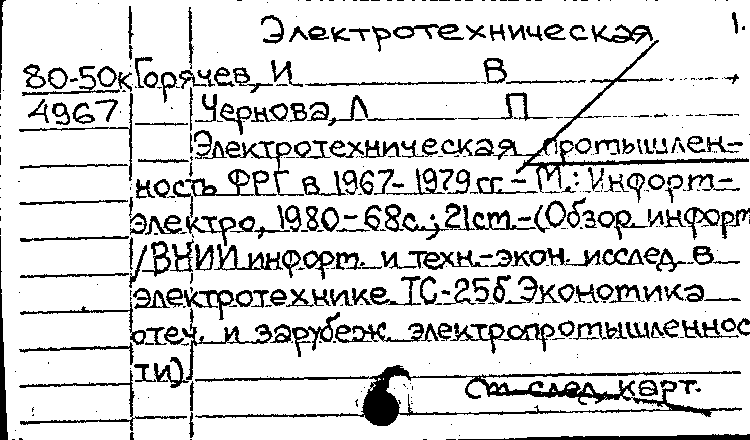 Электротехническая 1.
80-50к Горячев, И В
4967 Чернова, Л П
Электротехническая промышлен-
ность ФРГ в 1967-1979 гг. - М.: Информ-
электро, 1980 - 68с.; 21 ст. - (Обзор. информ
/ВНИИ информ. и техн.-экон. исслед. в
электротехнике. ТС-25б Экономика
отеч. и зарубеж. электропромышленнос
ти).
См след. карт.